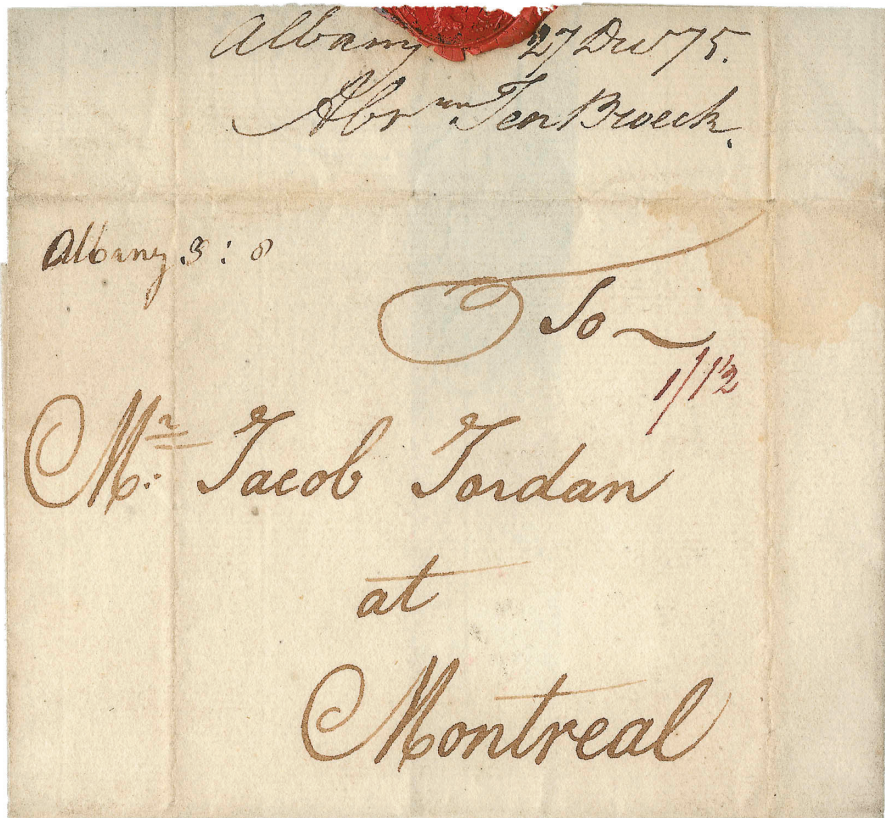 Albany 27 Decr 75.
Abrm Ten Broeck.
Albany 3 : 8
To
1/1½
Mr. Jacob Jordan
at
Montreal